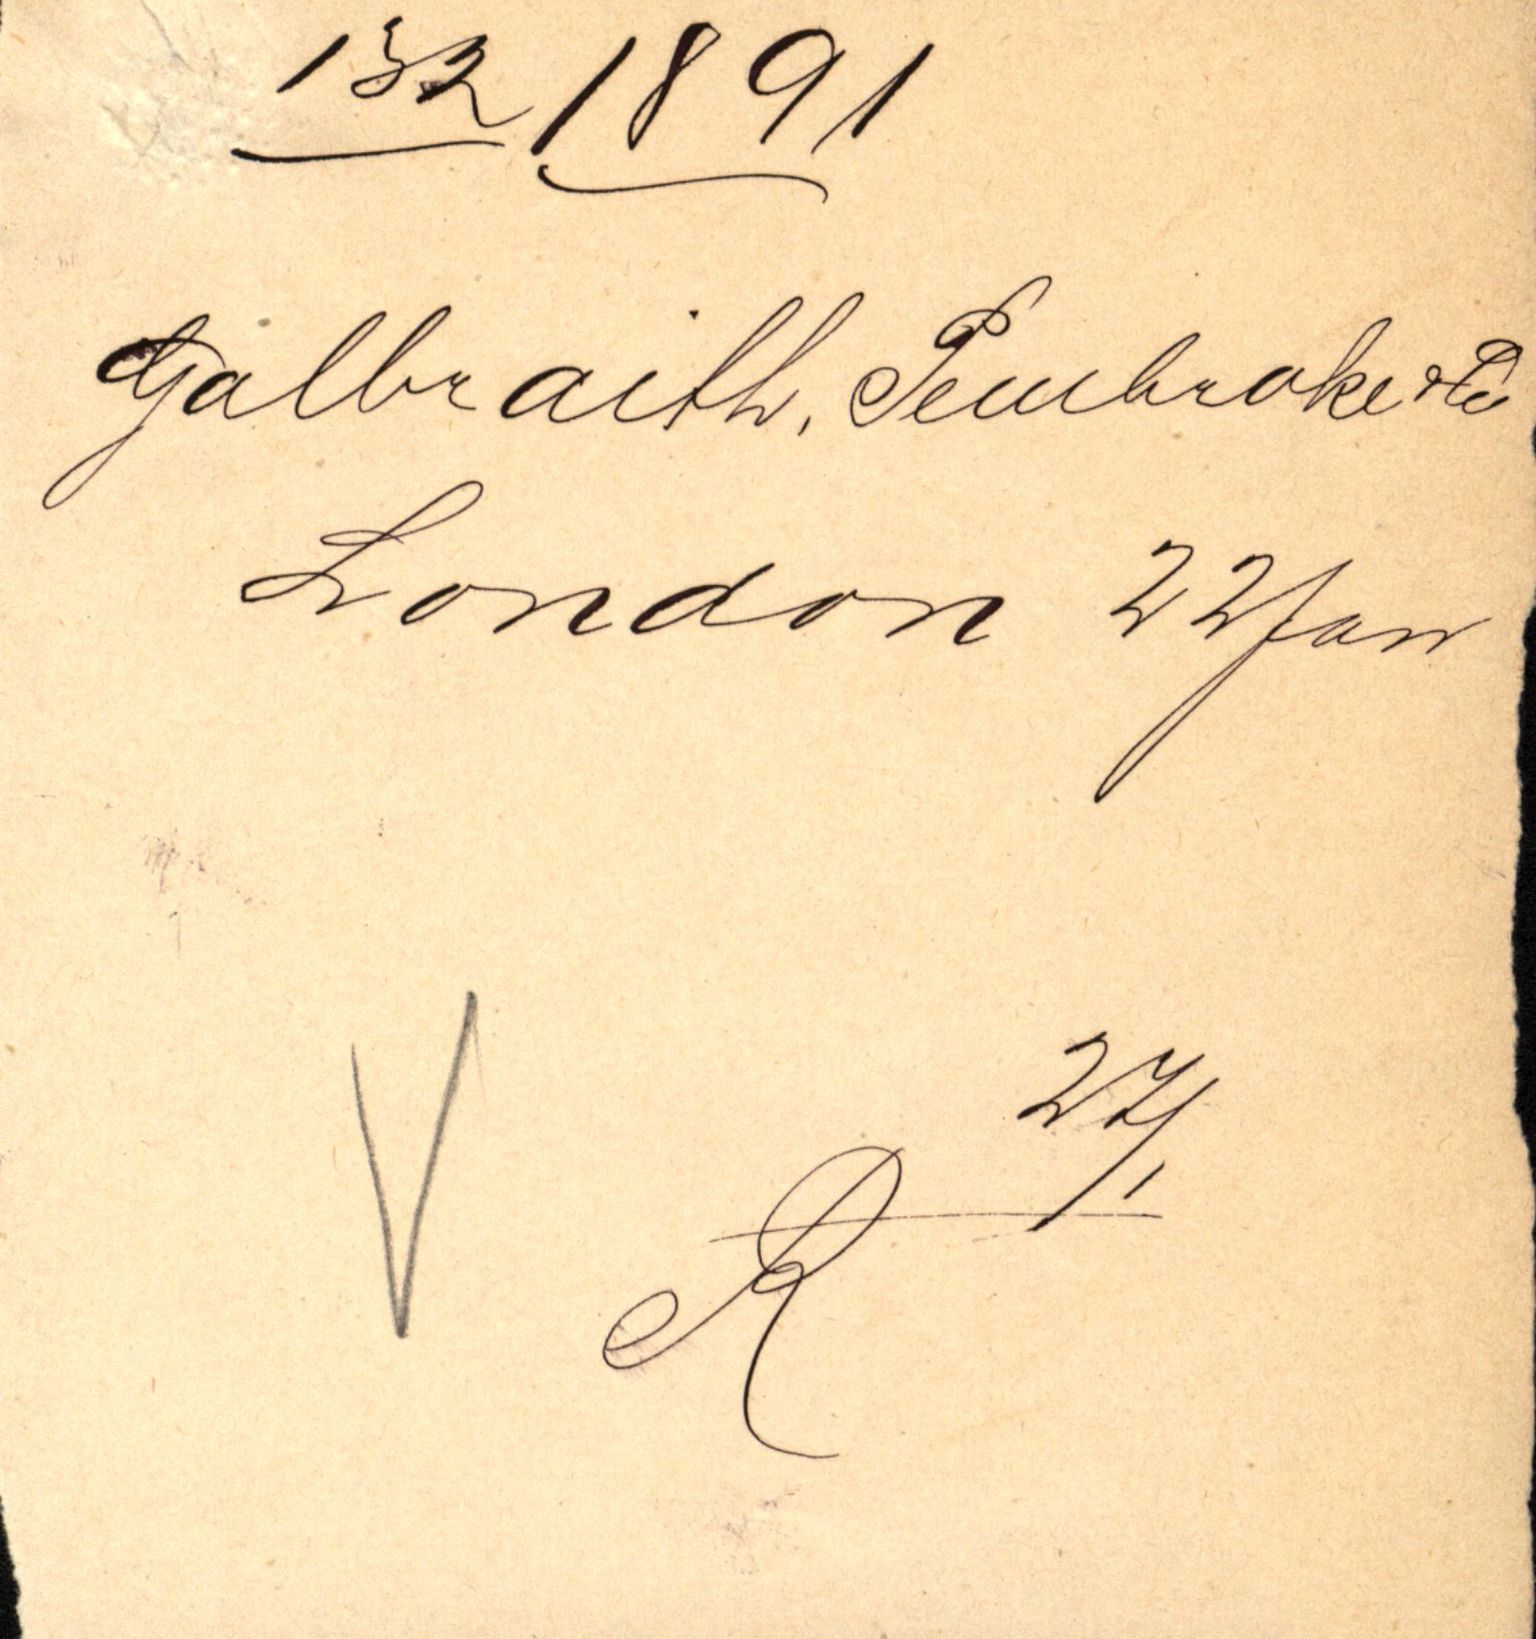 132 1891
Galbraith, Pembroke & Co
London 22 Jan
V
27/1
R